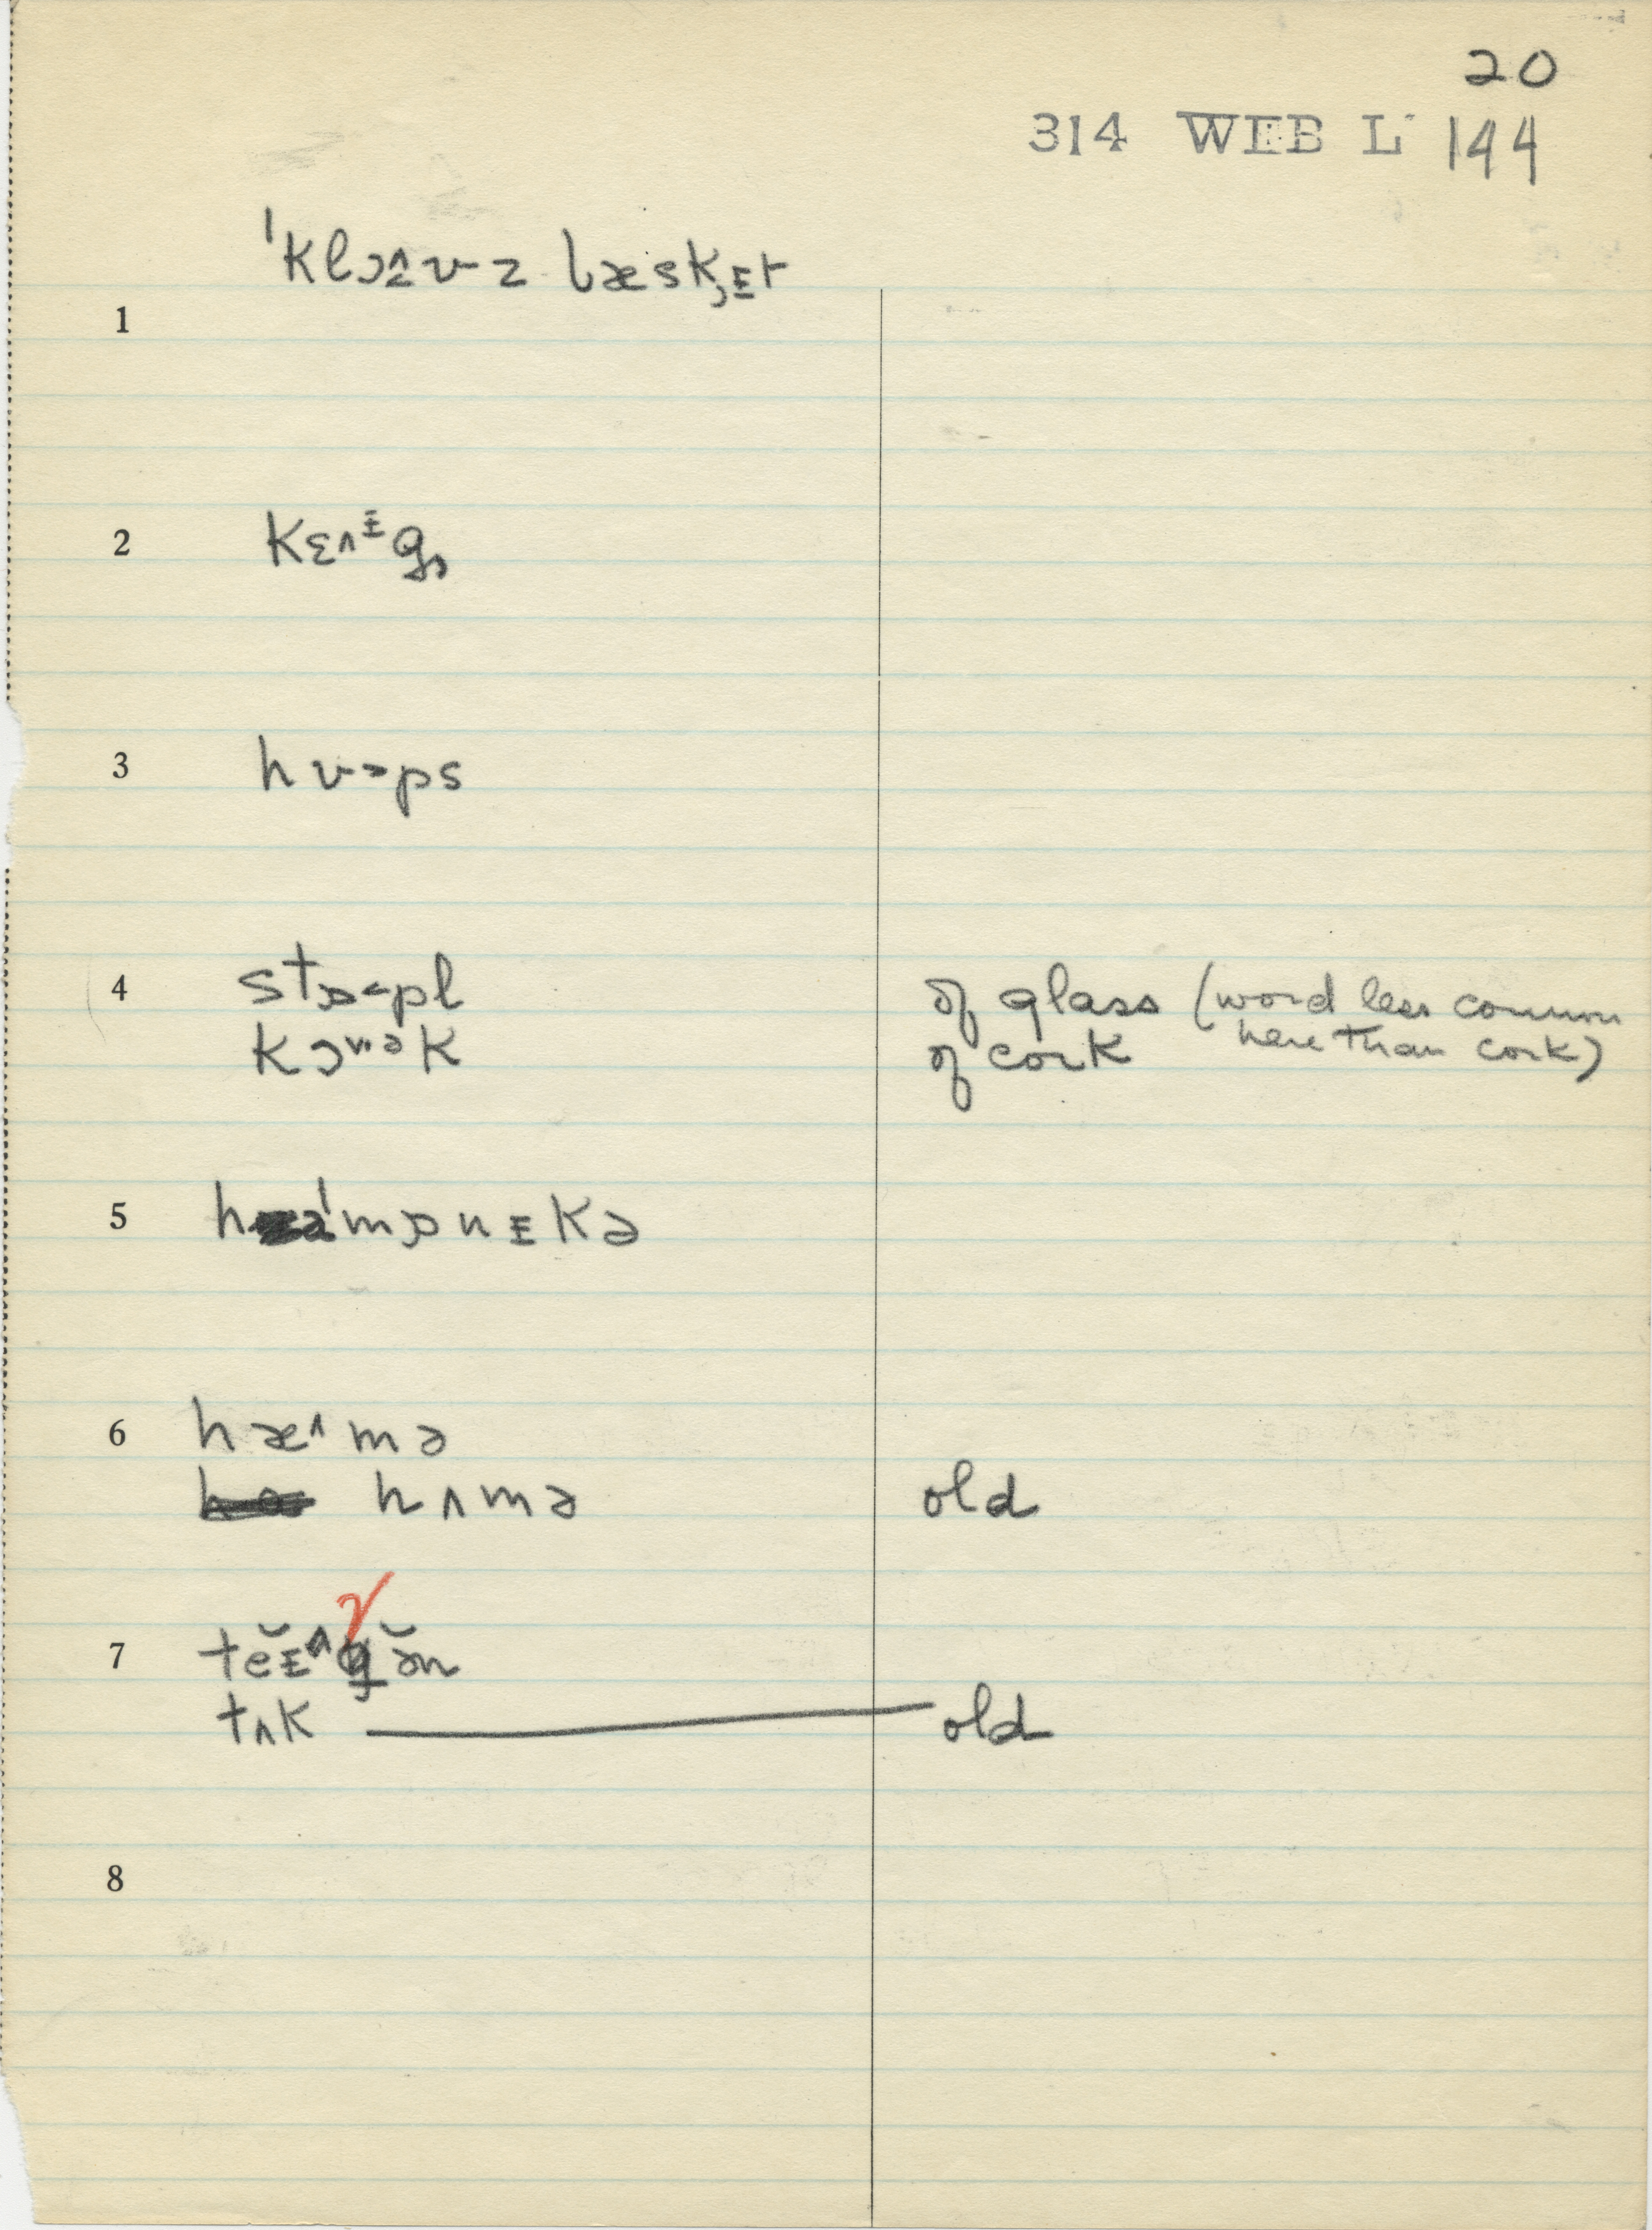 20
314 WEB L 144
1 ˈklɔ^ʊz bæskᵻt
2 kɛ^ᵻg
3 hʊ>ps
4 stɒ<pl of glass (word less common here than cork)
kɔʊək of cork
5 həˈmɒnᵻkə
6 hæ^mə
hʌmə old
7 teᵻ^gən
tʌk old
8